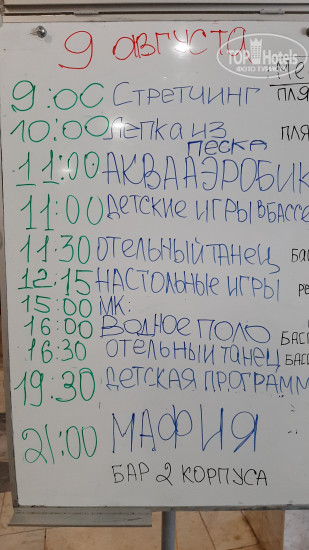 9 АВГУСТА
TOPHotels
ФОТО ТУРИСТОВ
МЕ
9:00 СТРЕТЧИНГ ПЛЯ
10:00 ЛЕПКА ИЗ ПЕСКА ПЛЯ
11:00 АКВААЭРОБИК
11:00 ДЕТСКИЕ ИГРЫ В БАССЕ
11.30 ОТЕЛЬНЫЙ ТАНЕЦ БАС
12.15 НАСТОЛЬНЫЕ ИГРЫ РЕ
15:00 МК:
16:00 ВОДНОЕ ПОЛО БАСС
16:30 ОТЕЛЬНЫЙ ТАНЕЦ БАСС
19.30 ДЕТСКАЯ ПРОГРАММ
21:00 МАФИЯ
БАР 2 КОРПУСА